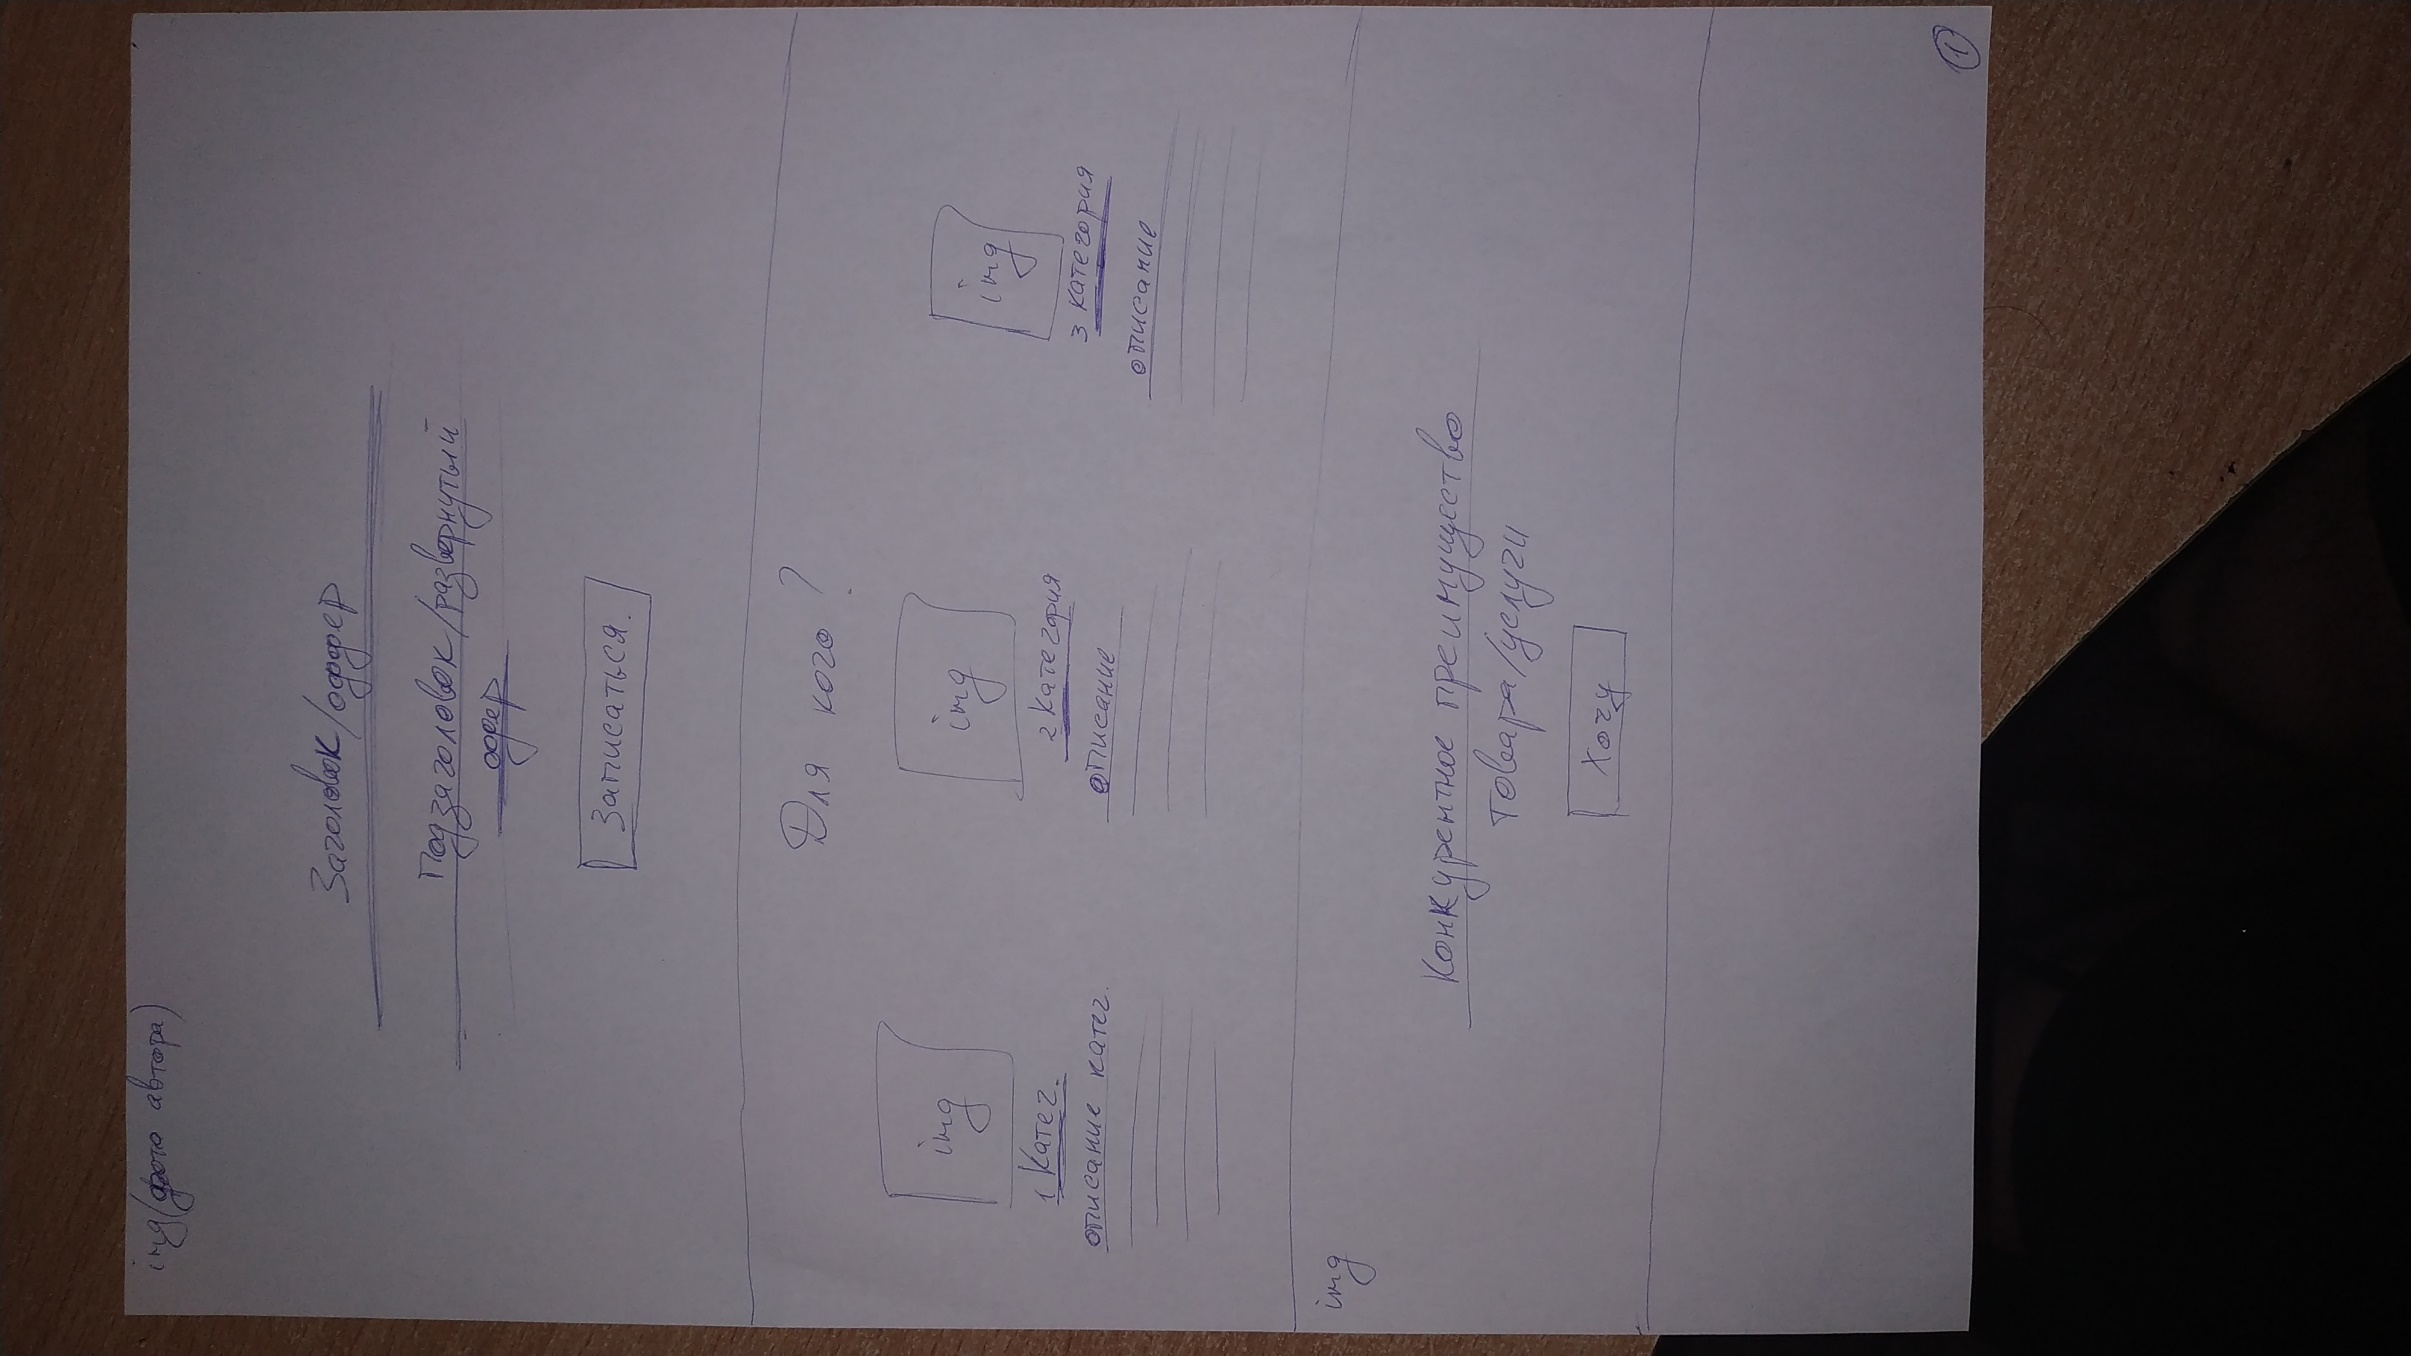 img (фото автора)
Заголовок/оффер
Подзаголовок/развернутый
офер
Записаться.
Для кого?
img
1 Катег.
описание катег.
img
2 Категория
описание
img
3 категория
описание
img
Конкурентное преимущество
товара/услуги
Хочу
1